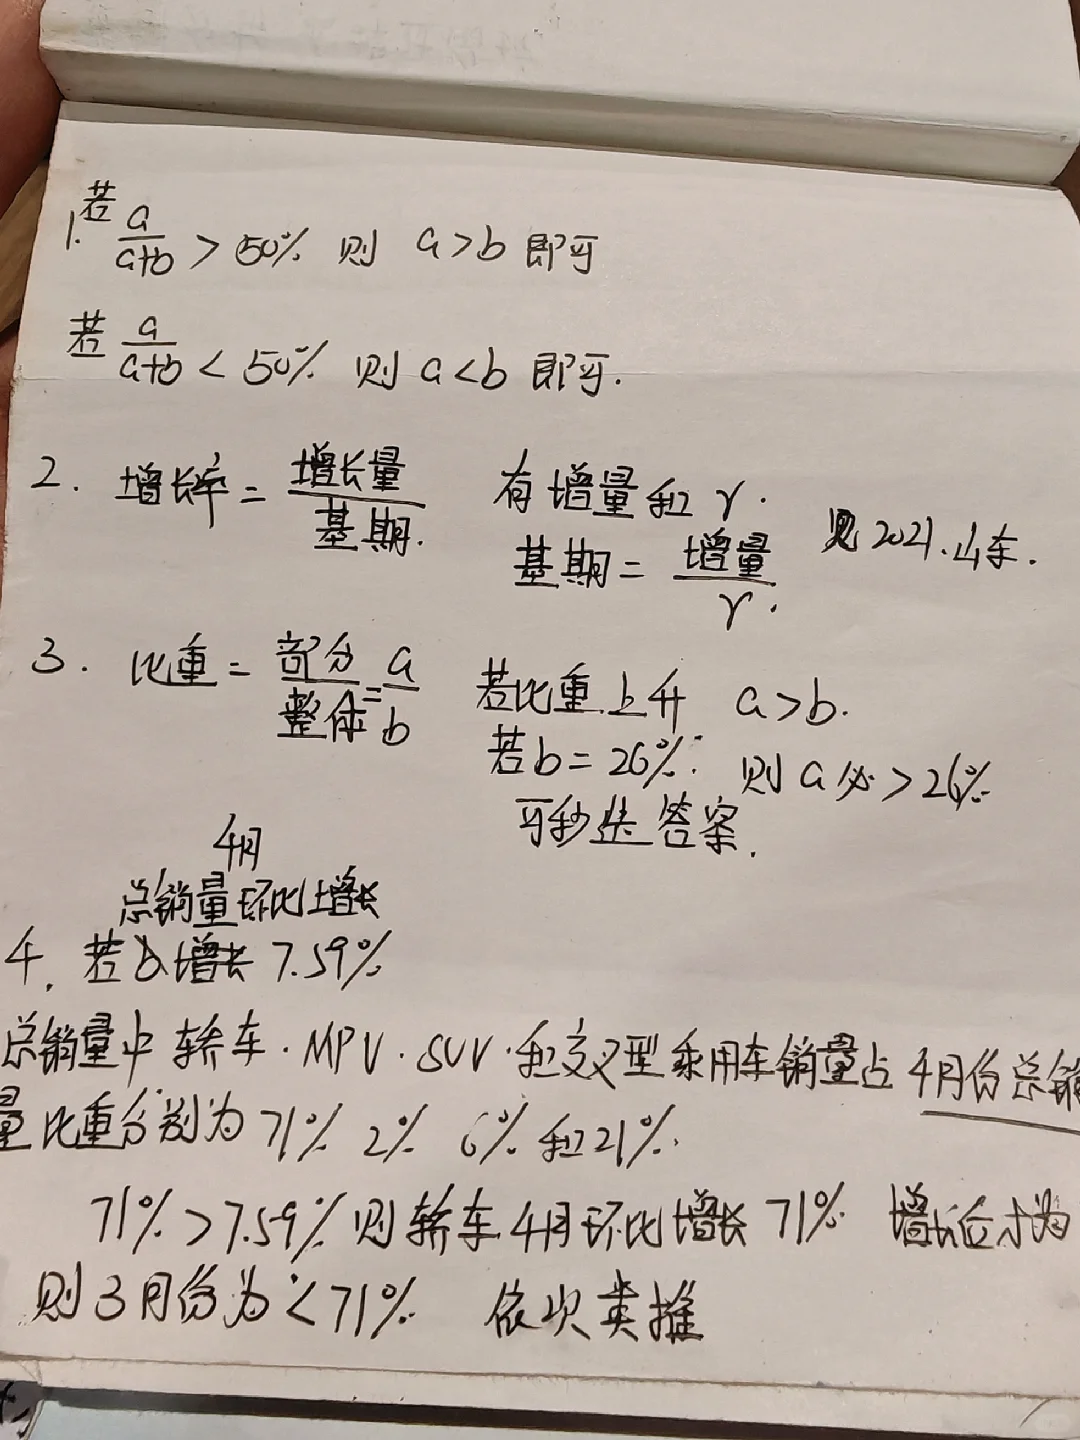 1. 若 a/(a+b) > 50% 则 a>b 即可
若 a/(a+b) < 50% 则 a<b 即可.
2. 增长率 = 增长量/基期. 有增量和 r.
基期 = 增量/r. 见2021.山东.
3. 比重 = 部分/整体 = a/b 若比重上升 a>b.
若b=26%. 则a必>26%
可秒选答案.
4月
总销量环比增长
4. 若 增长 7.59%
总销量中 轿车.MPV.SUV.和交叉型乘用车销量占 4月份总销
量比重分别为 71% 2% 6% 和21%.
71%>7.59% 则轿车4月环比增长 71% 增长后才为
则3月份为<71% 依次类推